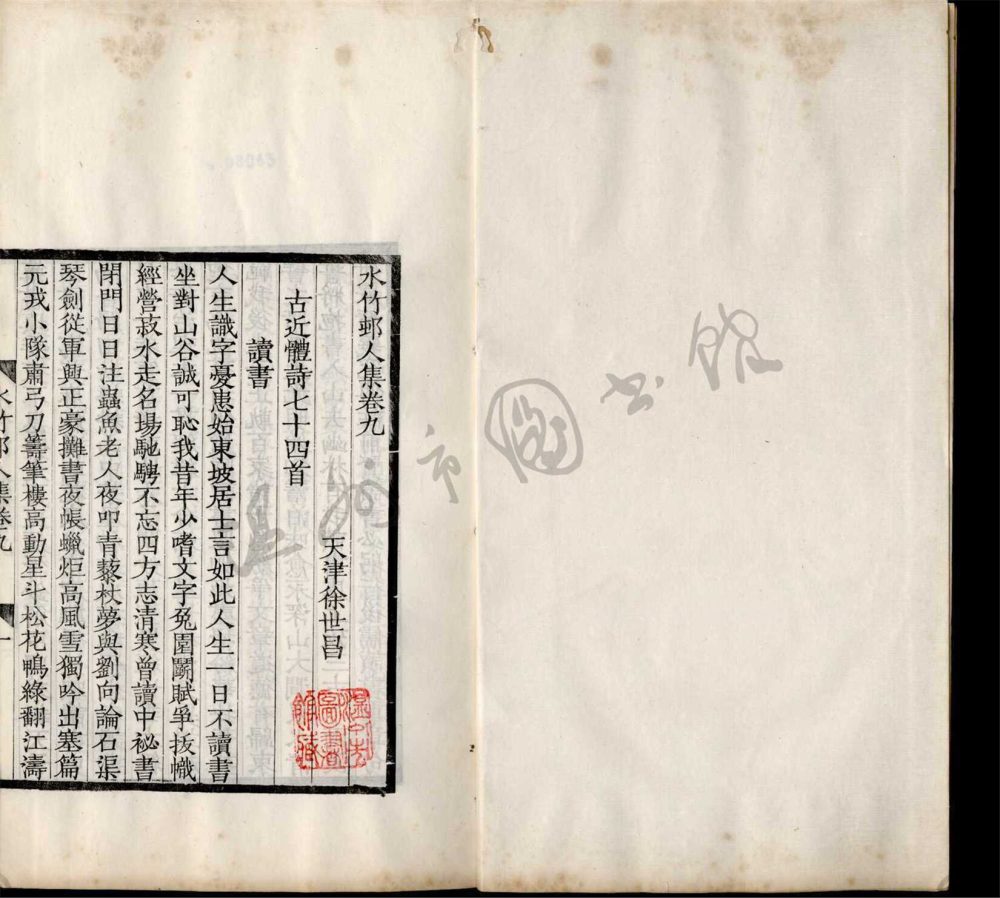 水竹邨人集卷九
天津徐世昌
古近體詩七十四首
讀書
人生識字憂患始東坡居士言如此人生一日不讀書
坐對山谷誠可恥我昔年少嗜文字兔園鬭賦爭拔幟
經營菽水走名場馳騁不忘四方志清寒曾讀中祕書
閉門日日注蟲魚老人夜叩青藜杖夢與劉向論石渠
琴劍從軍興正豪攤書夜帳蠟炬高風雪獨吟出塞篇
元戎小隊肅弓刀籌筆樓高動星斗松花鴨綠翻江濤
水竹邨人集卷九
一
市圖書館